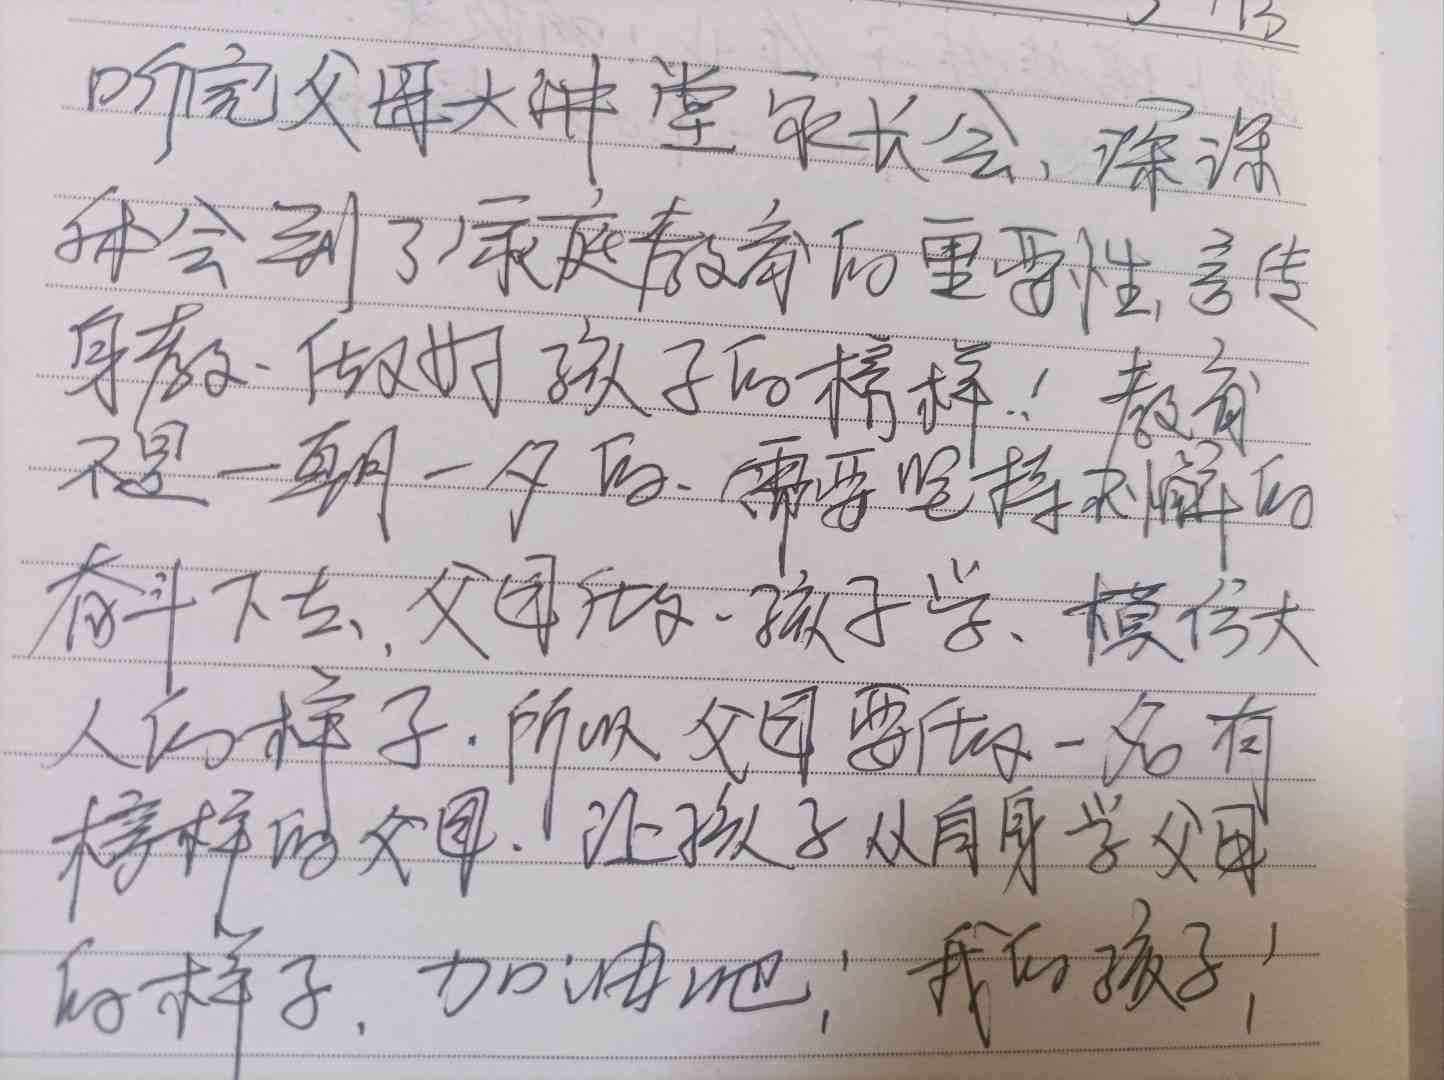 听完父母大讲堂家长会、深深
体会到了家庭教育的重要性,言传
身教、做好孩子的榜样!教育
不是一朝一夕的、需要坚持不懈的
奋斗下去,父母做、孩子学、模仿大
人的样子.所以父母要做一名有
榜样的父母.让孩子从自身学父母
的样子.加油吧!我的孩子!